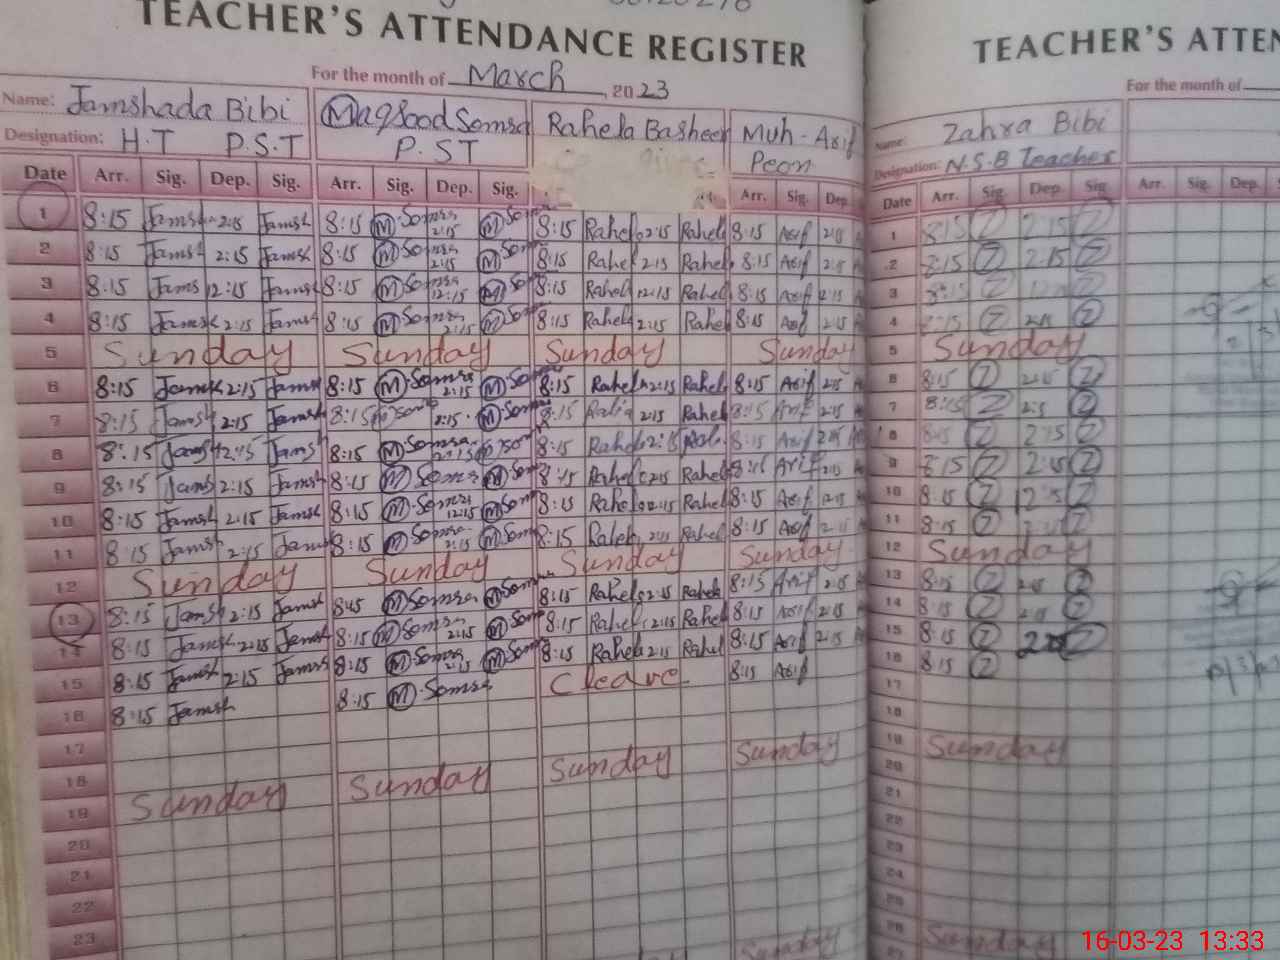 TEACHER'S ATTENDANCE REGISTER
For the month of March, 2023
Name: Jamshada Bibi Maqsood Somra Rahela Basheer Muh-Asif
Designation: H.T P.S.T P.ST Peon
Date Arr. Sig. Dep. Sig. Arr. Sig. Dep. Sig. Arr. Sig. Dep.
1 8:15 Jamsh 2:15 Jamsh 8:15 M.Somra 2:15 M.Som 8:15 Rahela 2:15 Rahel 8:15 Asif 2:15
2 8:15 Jamsh 2:15 Jamsh 8:15 M.Somra 2:15 M.Som 8:15 Rahel 2:15 Rahel 8:15 Asif 2:15
3 8:15 Jams 12:15 Jamsh 8:15 M.Somra 12:15 M.Som 8:15 Rahel 12:15 Rahel 8:15 Asif 12:15
4 8:15 Jamsh 2:15 Jamsh 8:15 M.Somra 2:15 M.Som 8:15 Rahela 2:15 Rahel 8:15 Asif 2:15
5 Sunday Sunday Sunday Sunday
6 8:15 Jamsh 2:15 Jams 8:15 M.Somra 2:15 M.Som 8:15 Rahela 2:15 Rahel 8:15 Asif 2:15
7 8:15 Jamsh 2:15 Jamsh 8:15 M.Som 2:15 M.Som 8:15 2:15 Rahel 8:15 Asif 2:15
8 8:15 Jamsh 2:15 Jamsh 8:15 M.Somra 2:15 8:15 Rahela 2:15 8:15 Asif 2:15
9 8:15 Jamsh 2:15 Jamsh 8:15 M.Somra M.Som 8:15 Rahela 2:15 Rahel 8:15 Asif 2:15
10 8:15 Jamsh 2:15 Jamsh 8:15 M.Somra 12:15 M.Som 8:15 Rahela 12:15 Rahel 8:15 Asif 12:15
11 8:15 Jamsh 2:15 Jamsh 8:15 M.Somra 2:15 M.Som 8:15 Rahela 2:15 Rahel 8:15 Asif 2:15
12 Sunday Sunday Sunday Sunday
13 8:15 Jamsh 2:15 Jamsh 8:15 M.Somra M.Som 8:15 Rahela 2:15 Rahela 8:15 Asif 2:15
14 8:15 Jamsh 2:15 Jamsh 8:15 M.Somra 2:15 M.Som 8:15 Rahel 2:15 Rahel 8:15 Asif 2:15
15 8:15 Jamsh 2:15 Jamsh 8:15 M.Somra 2:15 M.Som 8:15 Rahela 2:15 Rahel 8:15 Asif 2:15
16 8:15 Jamsh 8:15 M.Somra Cleave 8:15 Asif
17
18
19 Sunday Sunday Sunday Sunday
20
21
22
23
Sunday
TEACHER'S ATTEN
For the month of
Name: Zahra Bibi
Designation: N.S.B Teacher
Date Arr. Sig. Dep. Sig. Arr. Sig. Dep.
1 8:15 Z 2:15 Z
2 8:15 Z 2:15 Z
3 8:15 Z Z
4 8:15 Z 2:15 Z
5 Sunday
6 8:15 Z 2:15 Z
7 8:15 Z 2:15 Z
8 8:15 Z 2:15 Z
9 8:15 Z 2:15 Z
10 8:15 Z 12:15 Z
11 8:15 Z 2:15 Z
12 Sunday
13 8:15 Z 2:15 Z
14 8:15 Z 2:15 Z
15 8:15 Z Z
16 8:15 Z
17
18
19 Sunday
20
21
22
23
24
25
26 Sunday
27
16-03-23 13:33